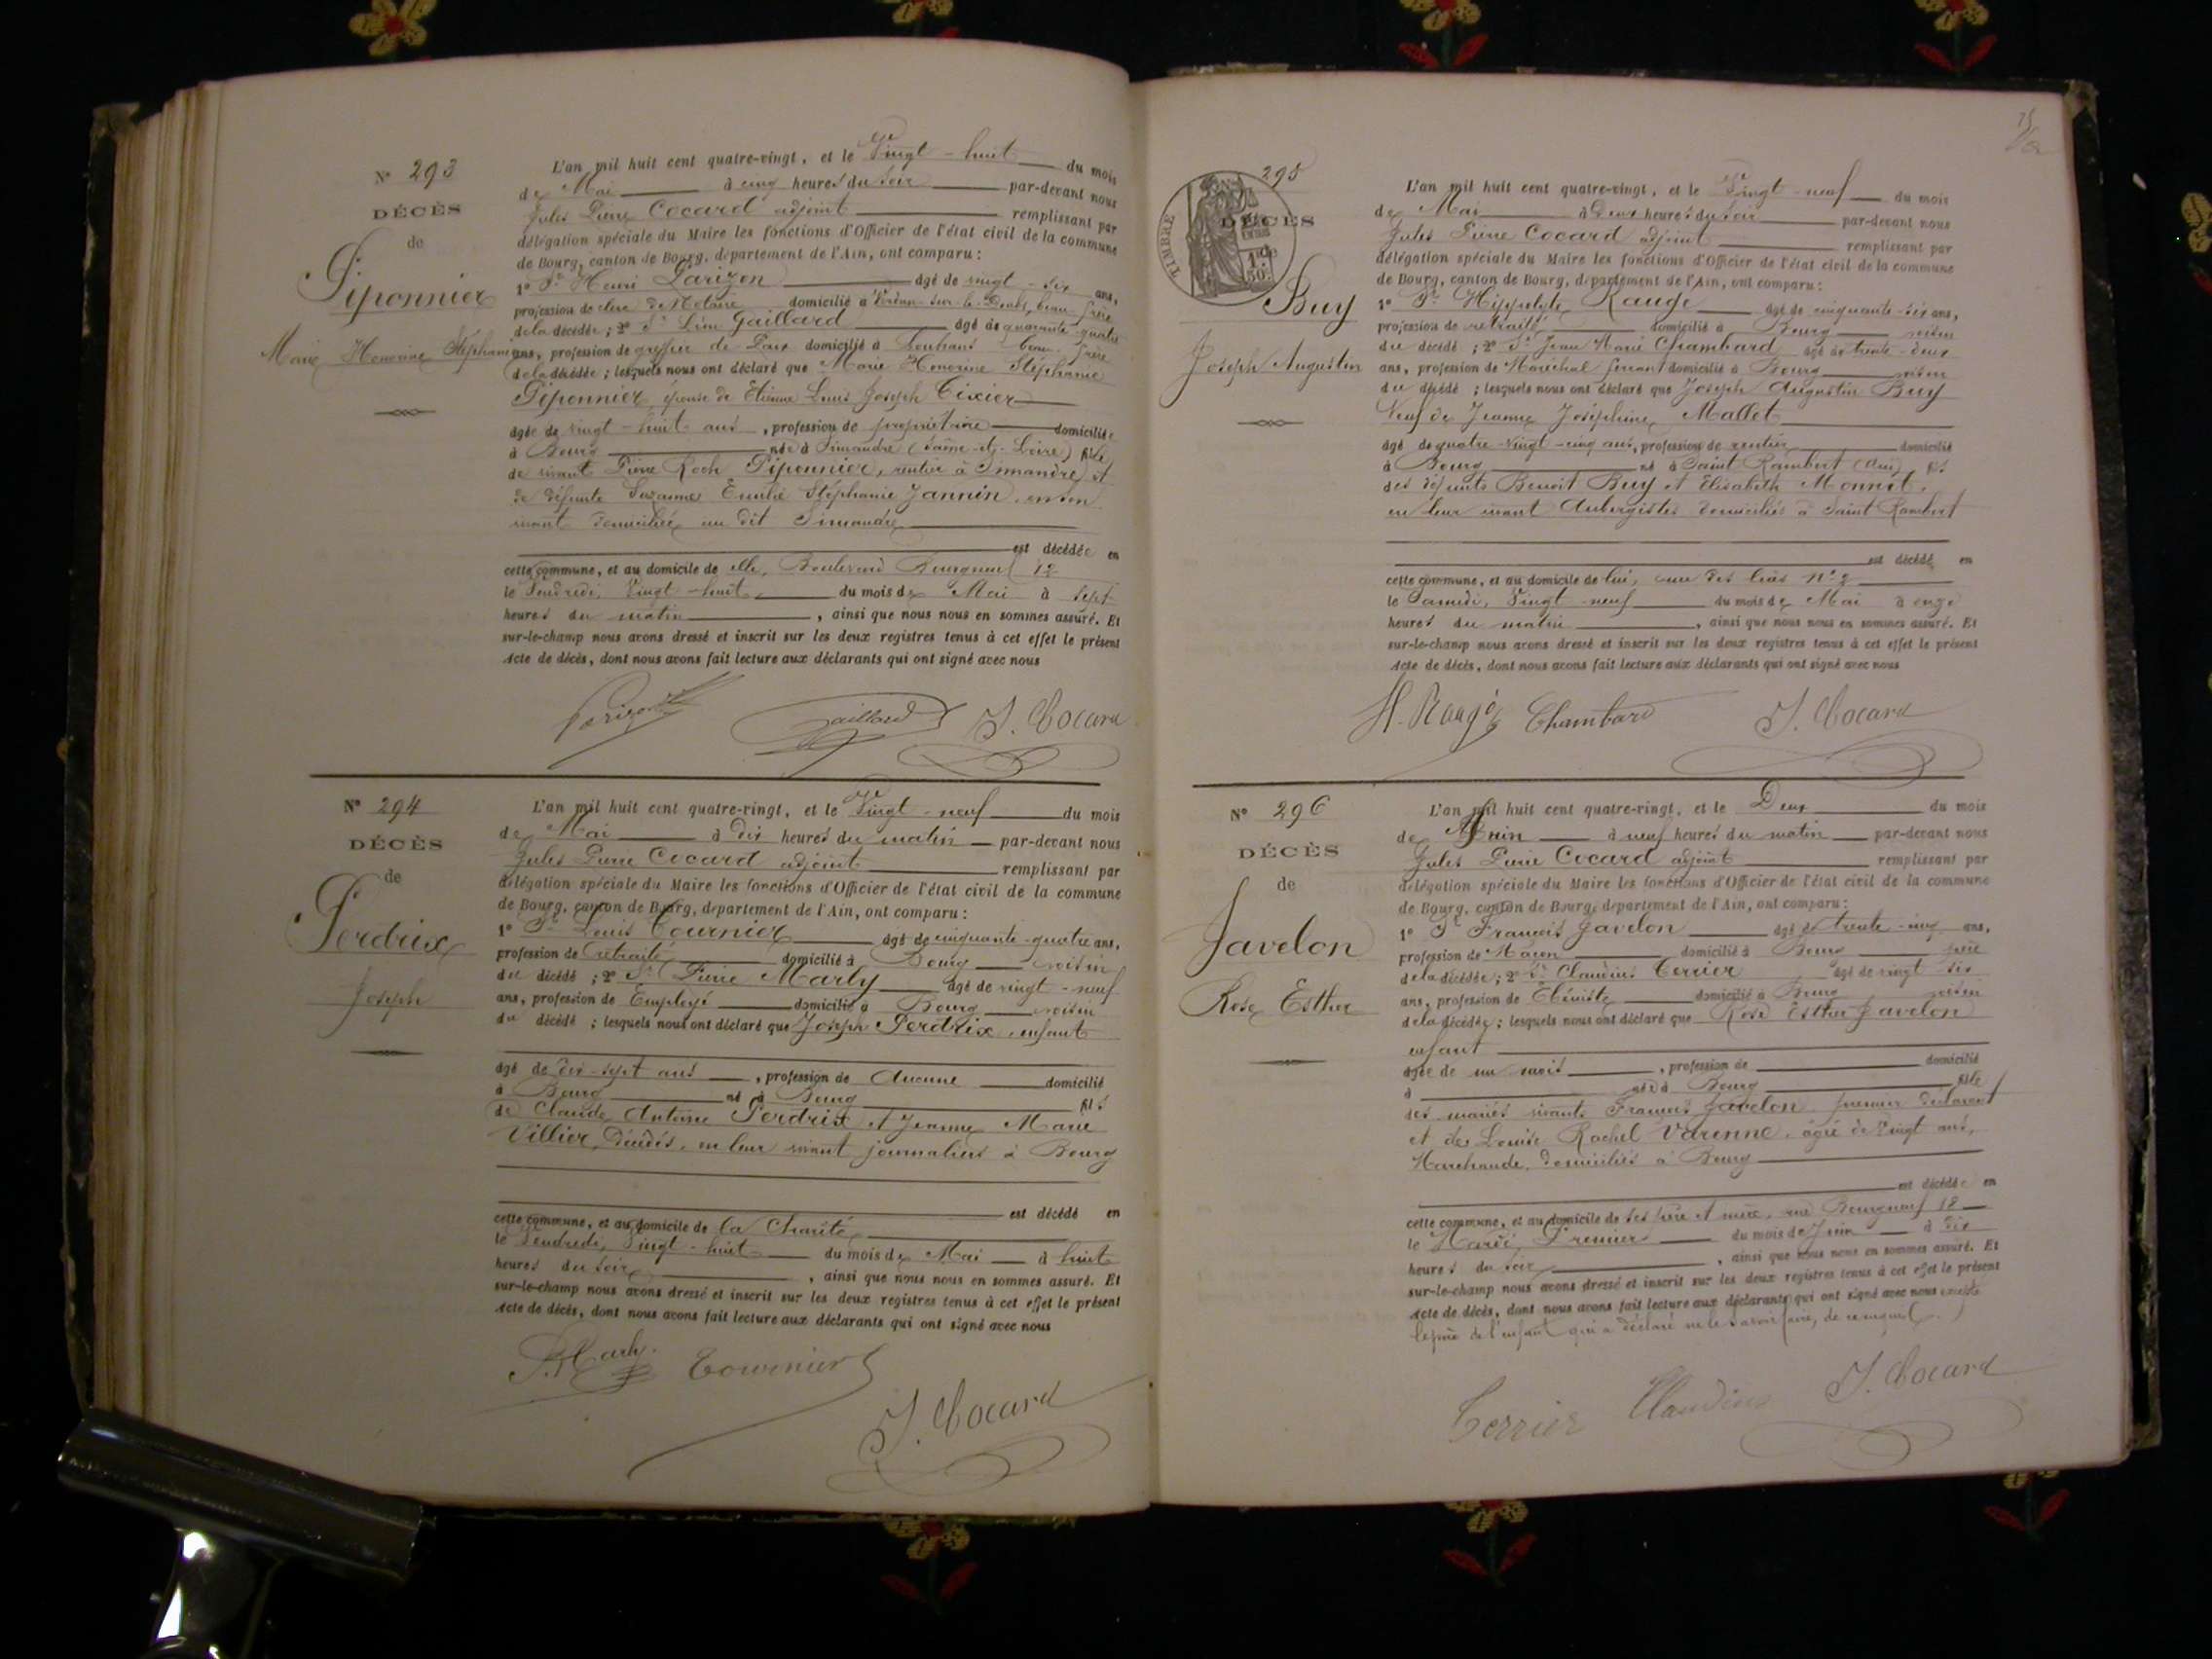 N° 293
DÉCÈS
de
Piponnier
Marie Honorine Stéphanie
L'an mil huit cent quatre-vingt, et le Vingt-huit du mois
de Mai à cinq heures du soir par-devant nous
Jules Pierre Cocard adjoint remplissant par
délégation spéciale du Maire les fonctions d'Officier de l'état civil de la commune
de Bourg, canton de Bourg, département de l'Ain, ont comparu :
1° Sr Henri Parizon âgé de vingt-six ans,
profession de clerc de Notaire domicilié à Verdun-sur-le-Doubs, beau frère
de la décédée ; 2° Sr Léon Gaillard âgé de quarante-quatre
ans, profession de greffier de Paix domicilié à Louhans beau-frère
de la décédée ; lesquels nous ont déclaré que Marie Honorine Stéphanie
Piponnier, épouse de Etienne Louis Joseph Tixier
âgée de vingt-huit ans, profession de propriétaire domiciliée
à Bourg née à Simandre (Saône-et-Loire) fille
de vivant Pierre Roch Piponnier, rentier à Simandre et
de défunte Suzanne Emilie Stéphanie Jannin, en son
vivant domiciliée au dit Simandre
est décédée en
cette commune, et au domicile de elle, Boulevard Bourgneuf 12
le Vendredi, Vingt-huit du mois de Mai à sept
heures du matin, ainsi que nous nous en sommes assuré. Et
sur-le-champ nous avons dressé et inscrit sur les deux registres tenus à cet effet le présent
Acte de décès, dont nous avons fait lecture aux déclarants qui ont signé avec nous
Parizon Gaillard J. Cocard
N° 294
DÉCÈS
de
Perdrix
Joseph
L'an mil huit cent quatre-vingt, et le Vingt-neuf du mois
de Mai à dix heures du matin par-devant nous
Jules Pierre Cocard adjoint remplissant par
délégation spéciale du Maire les fonctions d'Officier de l'état civil de la commune
de Bourg, canton de Bourg, département de l'Ain, ont comparu :
1° Sr Louis Tournier âgé de cinquante-quatre ans,
profession de retraité domicilié à Bourg voisin
du décédé ; 2° Sr Pierre Marly âgé de vingt-neuf
ans, profession de Employé domicilié à Bourg voisin
du décédé ; lesquels nous ont déclaré que Joseph Perdrix, enfant
âgé de dix-sept ans, profession de Aucune domicilié
à Bourg né à Bourg fils
de Claude Antoine Perdrix et Jeanne Marie
Villier, décédés, en leur vivant journaliers à Bourg
est décédé en
cette commune, et au domicile de la Charité
le Vendredi, Vingt-huit du mois de Mai à huit
heures du soir, ainsi que nous nous en sommes assuré. Et
sur-le-champ nous avons dressé et inscrit sur les deux registres tenus à cet effet le présent
Acte de décès, dont nous avons fait lecture aux déclarants qui ont signé avec nous
P. Marly Tournier
J. Cocard
295
DÉCÈS
de
TIMBRE
Buy
Joseph Augustin
L'an mil huit cent quatre-vingt, et le Vingt-neuf du mois
de Mai à Deux heures du soir par-devant nous
Jules Pierre Cocard adjoint remplissant par
délégation spéciale du Maire les fonctions d'Officier de l'état civil de la commune
de Bourg, canton de Bourg, département de l'Ain, ont comparu :
1° Sr Hippolyte Raugé âgé de cinquante-six ans,
profession de retraité domicilié à Bourg voisin
du décédé ; 2° Sr Jean Marie Chambard âgé de trente-deux
ans, profession de Maréchal ferrant domicilié à Bourg voisin
du décédé ; lesquels nous ont déclaré que Joseph Augustin Buy
Veuf de Jeanne Joséphine Mallet
âgé de quatre-vingt-cinq ans, profession de rentier domicilié
à Bourg né à Saint Rambert (Ain) fils
des défunts Benoit Buy et Elisabeth Monnet,
en leur vivant Aubergistes domiciliés à Saint Rambert
est décédé en
cette commune, et au domicile de lui, rue des lices n° 2
le Samedi, Vingt-neuf du mois de Mai à onze
heures du matin, ainsi que nous nous en sommes assuré. Et
sur-le-champ nous avons dressé et inscrit sur les deux registres tenus à cet effet le présent
Acte de décès, dont nous avons fait lecture aux déclarants qui ont signé avec nous
H. Raugé Chambard J. Cocard
N° 296
DÉCÈS
de
Javelon
Rose Esther
L'an mil huit cent quatre-vingt, et le Deux du mois
de Juin à neuf heures du matin par-devant nous
Jules Pierre Cocard adjoint remplissant par
délégation spéciale du Maire les fonctions d'Officier de l'état civil de la commune
de Bourg, canton de Bourg, département de l'Ain, ont comparu :
1° Sr François Javelon âgé de trente-cinq ans,
profession de Maçon domicilié à Bourg père
de la décédée ; 2° Sr Claudius Terrier âgé de vingt-six
ans, profession de Ébéniste domicilié à Bourg voisin
de la décédée ; lesquels nous ont déclaré que Rose Esther Javelon
enfant
âgée de un mois, profession de domicilié
à née à Bourg fille
des mariés vivants François Javelon premier déclarant
et de Louise Rachel Varenne, âgée de vingt ans,
Marchande, domiciliés à Bourg
est décédée en
cette commune, et au domicile de ses père et mère, rue Bourgneuf 18
le Mardi Premier du mois de Juin à dix
heures du soir, ainsi que nous nous en sommes assuré. Et
sur-le-champ nous avons dressé et inscrit sur les deux registres tenus à cet effet le présent
Acte de décès, dont nous avons fait lecture aux déclarants qui ont signé avec nous excepté
le père de l'enfant qui a déclaré ne le savoir faire, de ce requis
Terrier Claudius J. Cocard